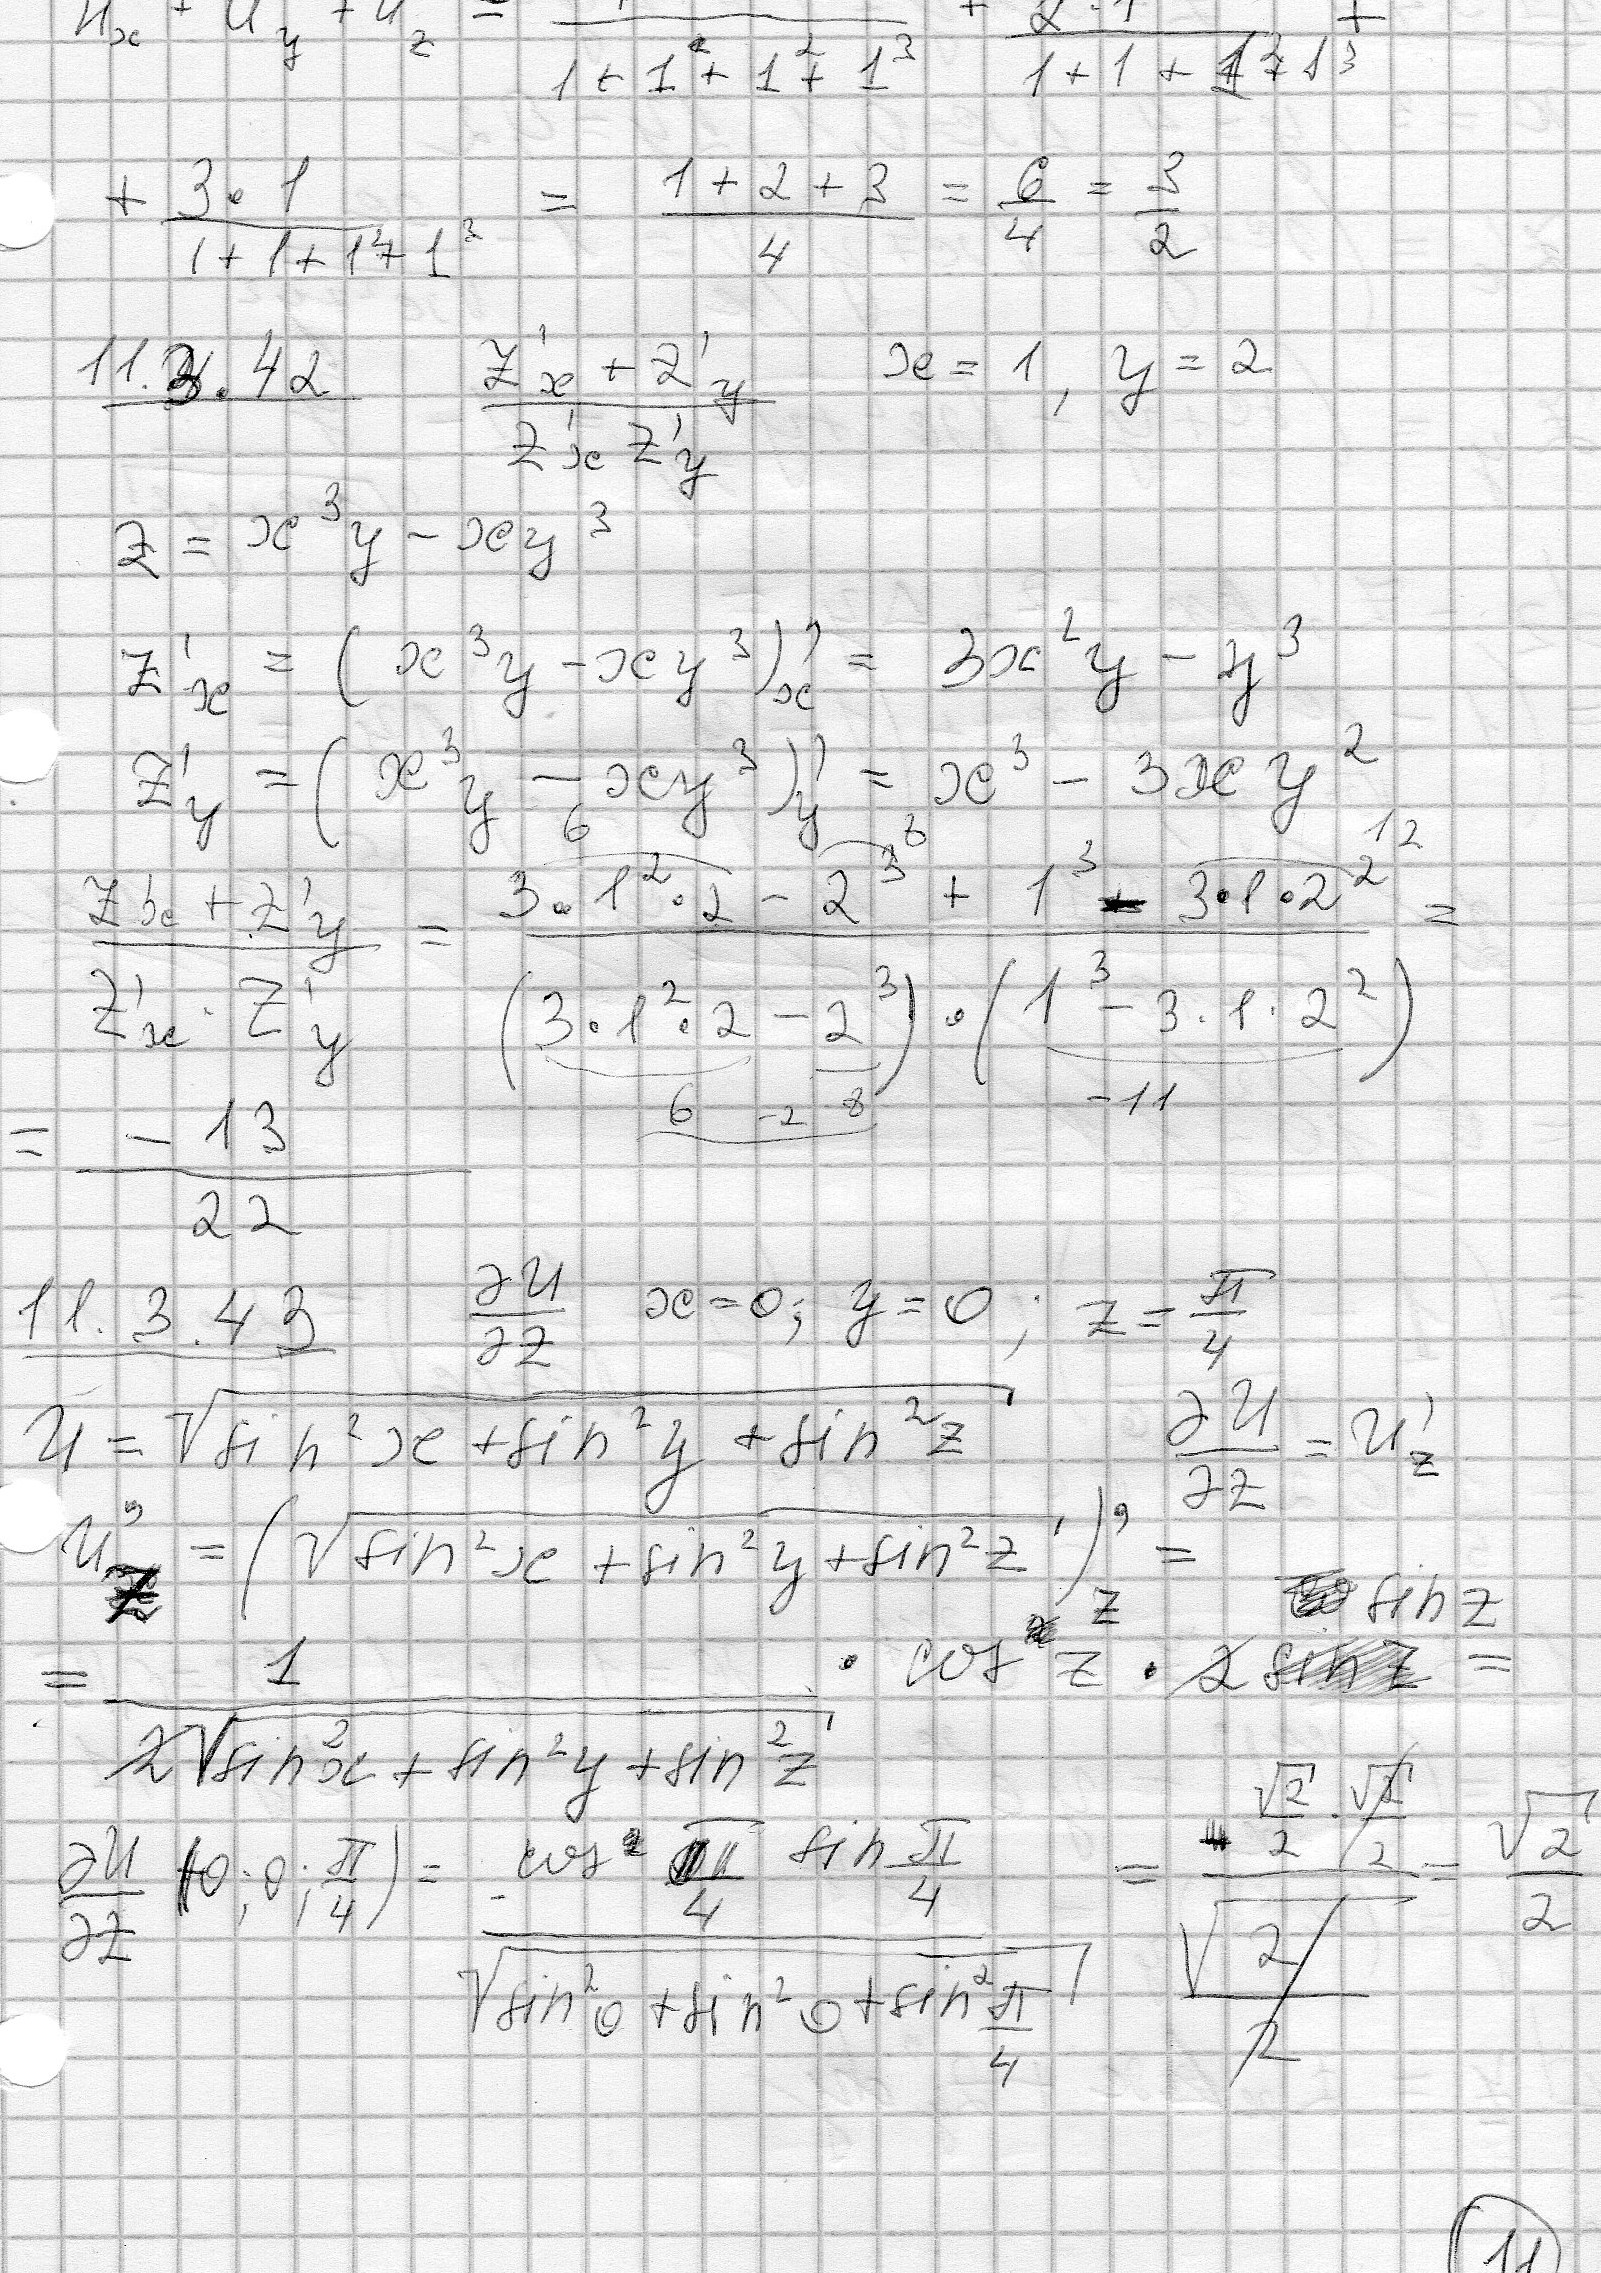 u'x + u'y + u'z = 1/(1 + 1² + 1² + 1³) + 2·1/(1 + 1 + 1² + 1³) +
+ 3·1/(1 + 1 + 1² + 1³) = (1 + 2 + 3)/4 = 6/4 = 3/2
11.3.42 (z'x + z'y)/(z'x z'y) x = 1, y = 2
z = x³y − xy³
z'x = (x³y − xy³)'x = 3x²y − y³
z'y = (x³y − xy³)'y = x³ − 3xy²
6 8 12
(z'x + z'y)/(z'x · z'y) = (3·1²·2 − 2³ + 1³ − 3·1·2²)/((3·1²·2 − 2³)·(1³ − 3·1·2²)) =
6 −2 8 −11
= −13/22
11.3.43 ∂u/∂z x = 0; y = 0; z = π/4
u = √(sin²x + sin²y + sin²z) ∂u/∂z = u'z
u'z = (√(sin²x + sin²y + sin²z))'z =
sin z
= 1/(2√(sin²x + sin²y + sin²z)) · cos z · 2 =
∂u/∂z (0; 0; π/4) = (cos π/4 sin π/4)/√(sin²0 + sin²0 + sin²π/4) = (√2/2 · √2/2)/(√2/2) = √2/2
11